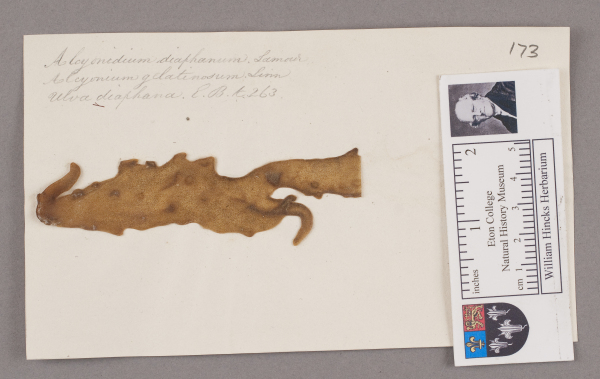 Alcyonidium diaphanum. Lamour
Alcyonium gelatinosum Linn
Ulva diaphana. E. B. t. 263.
173
inches 1 2
Eton College
Natural History Museum
cm 1 2 3 4 5
William Hincks Herbarium